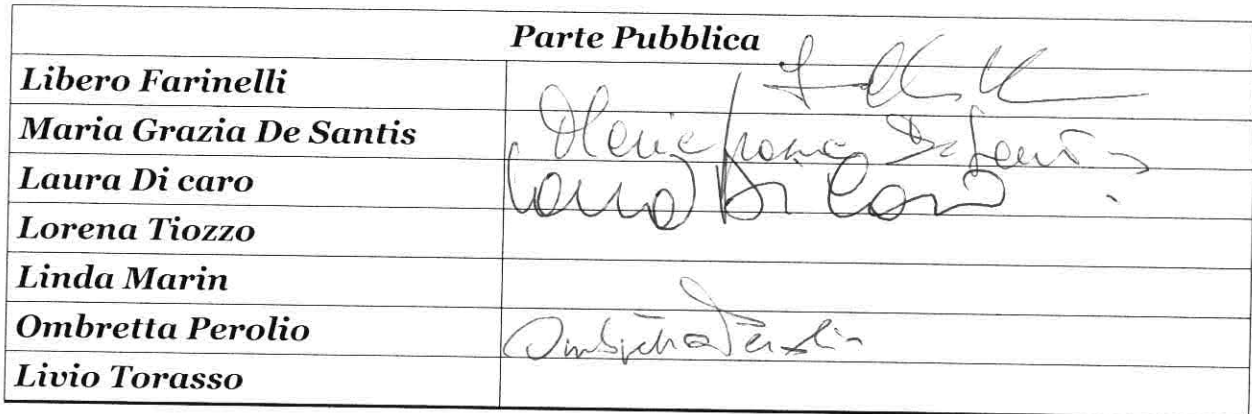 Parte Pubblica
Libero Farinelli
Maria Grazia De Santis Maria Grazia De Santis
Laura Di caro Laura Di Caro
Lorena Tiozzo
Linda Marin
Ombretta Perolio Ombretta Perolio
Livio Torasso